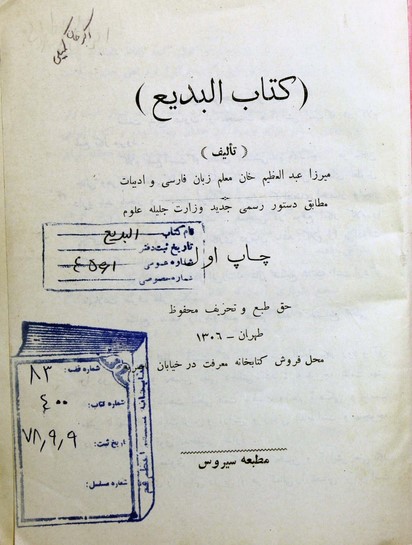 ( کتاب البدیع )
( تألیف )
میرزا عبد العظیم خان معلم زبان فارسی و ادبیات
مطابق دستور رسمی جدید وزارت جلیله علوم
نام کتاب البدیع
تاریخ ثبت دفتر
شماره عمومی
شماره خصوصی
چاپ اول
حق طبع و تحریف محفوظ
طهران – ۱۳۰۶
محل فروش کتابخانه معرفت در خیابان
شماره قفسه: ۸۳
شماره کتاب: ۴۰۰
تاریخ ثبت: ۷۸,۹,۹
شماره مسلسل:
کتابخانه مسجد اعظم قم
مطبعه سیروس